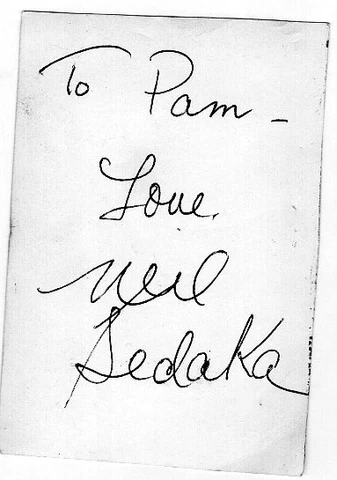 To Pam -
Love,
Neil
Sedaka